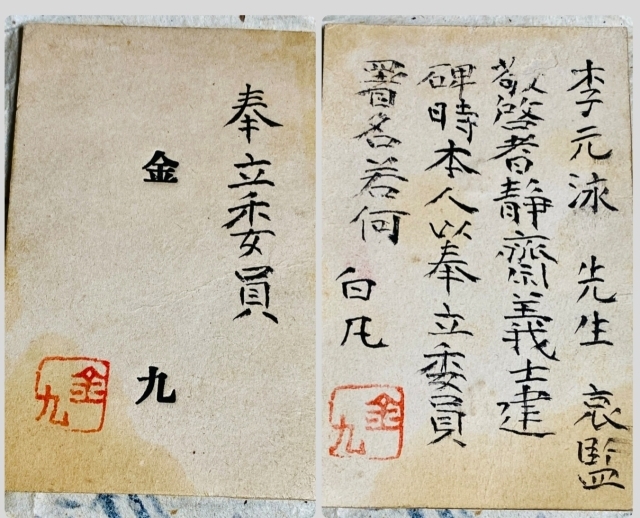 奉立委員
金九
金九
李元泳 先生 哀監
敬啓者靜齋義士建
碑時本人以奉立委員
署名若何
白凡
金九